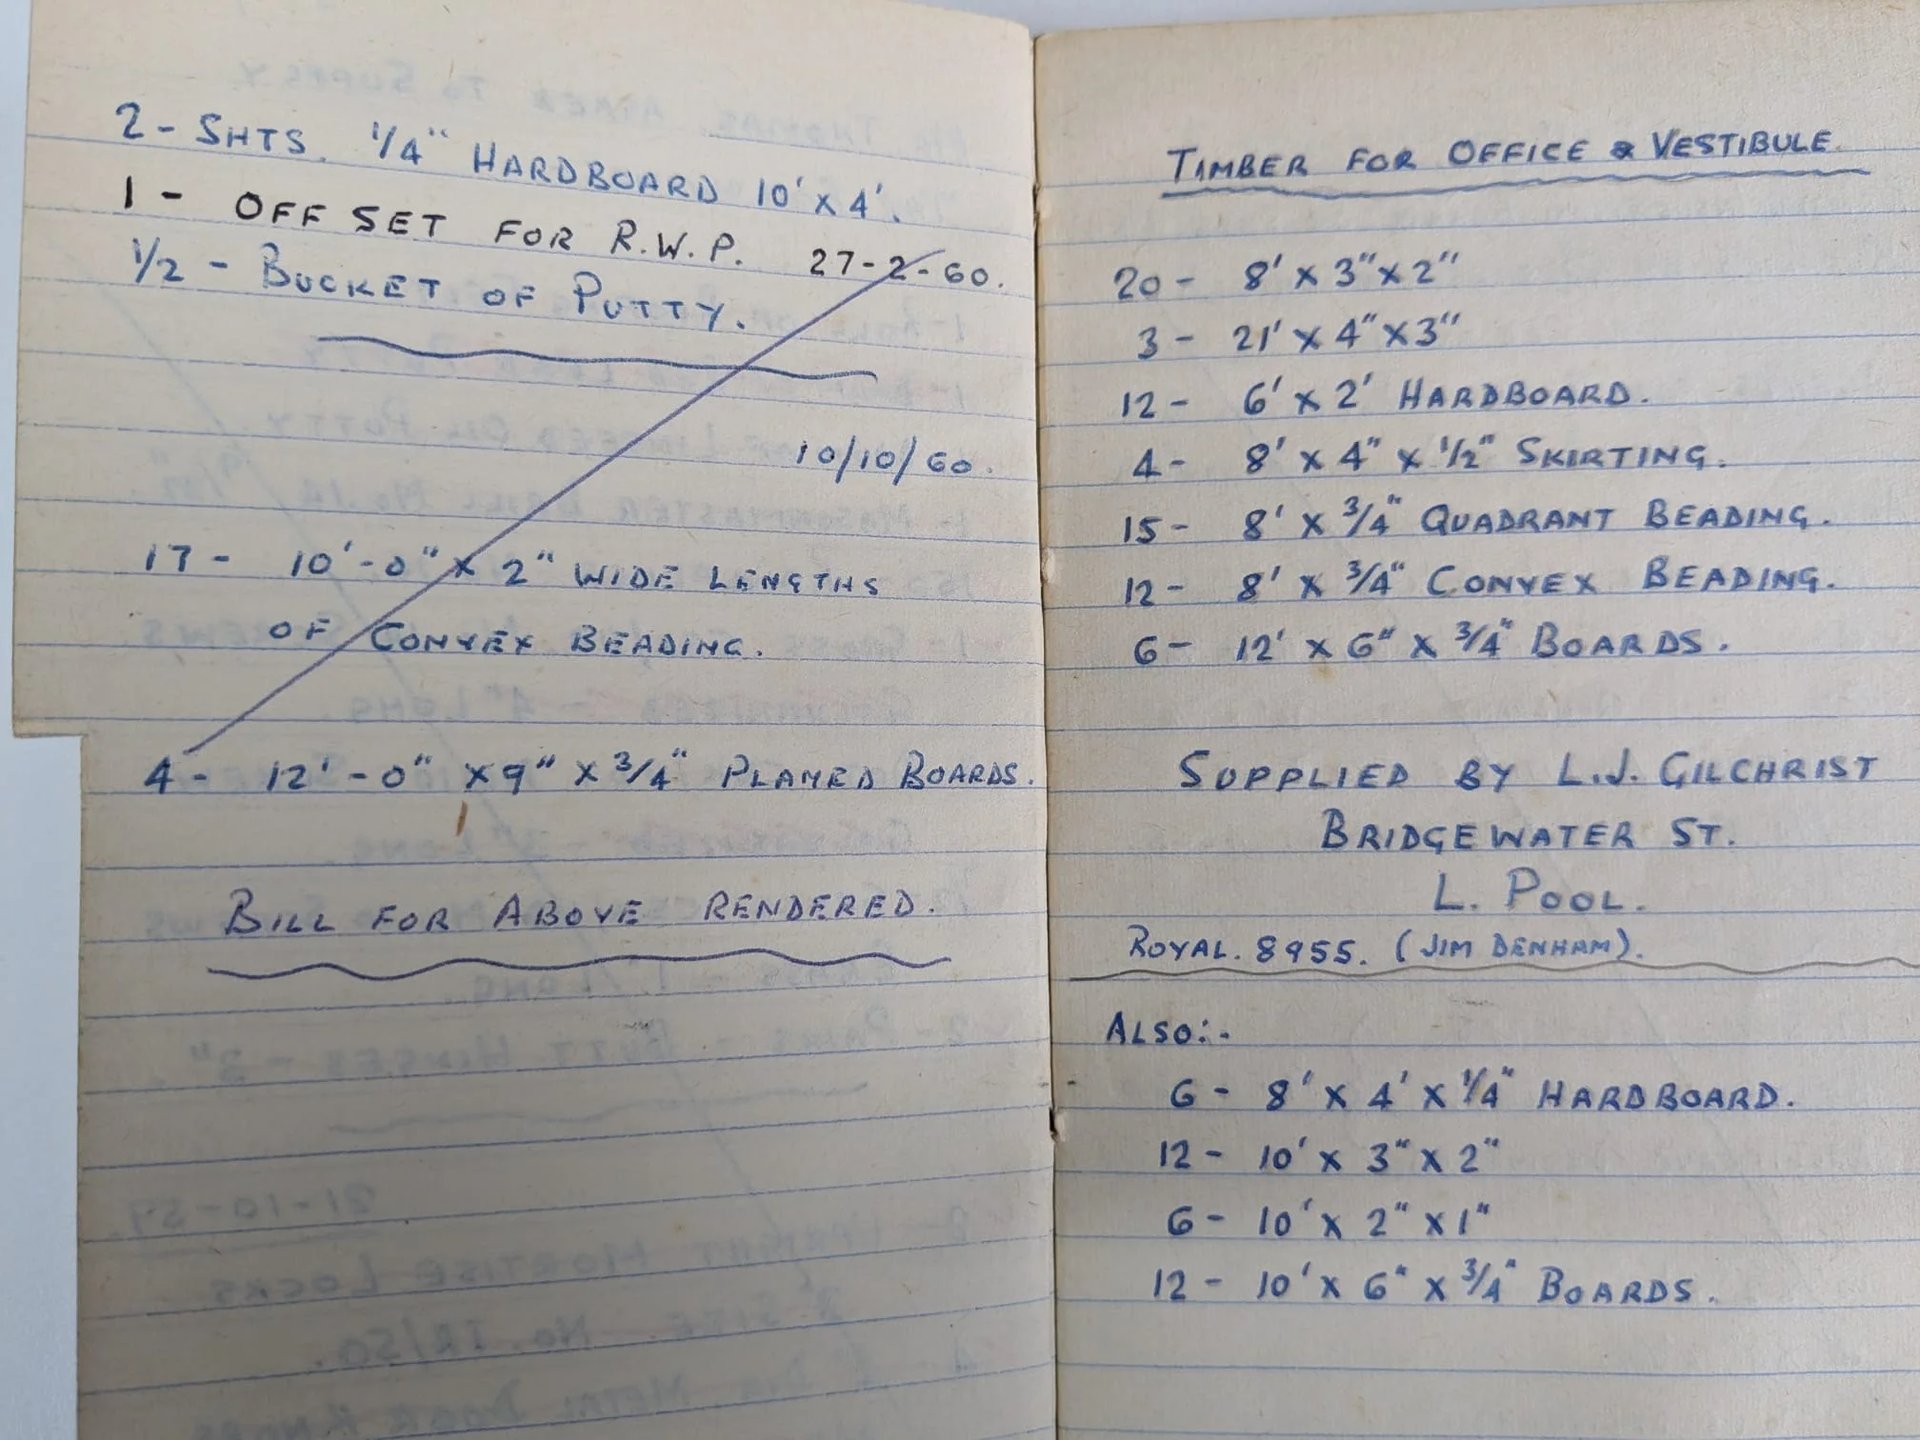 2 - SHTS. 1/4" HARDBOARD 10' x 4'.
1 - OFF SET FOR R.W.P. 27-2-60.
1/2 - BUCKET OF PUTTY.
10/10/60.
17 - 10'-0" x 2" WIDE LENGTHS
OF CONVEX BEADING.
4 - 12'-0" x 9" x 3/4" PLANED BOARDS.
BILL FOR ABOVE RENDERED.
TIMBER FOR OFFICE & VESTIBULE.
20 - 8' x 3" x 2"
3 - 21' x 4" x 3"
12 - 6' x 2' HARDBOARD.
4 - 8' x 4" x 1/2" SKIRTING.
15 - 8' x 3/4" QUADRANT BEADING.
12 - 8' x 3/4" CONVEX BEADING.
6 - 12' x 6" x 3/4" BOARDS.
SUPPLIED BY L.J. GILCHRIST
BRIDGEWATER ST.
L. POOL.
ROYAL. 8955. (JIM DENHAM).
ALSO:-
6 - 8' x 4' x 1/4" HARDBOARD.
12 - 10' x 3" x 2"
6 - 10' x 2" x 1"
12 - 10' x 6" x 3/4" BOARDS.